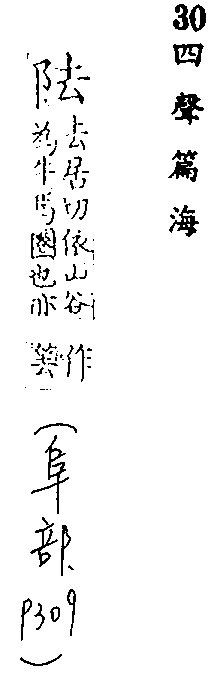 30 四聲篇海
阹
去居切依山谷 作
為牛馬圈也亦
(阜部 P309)